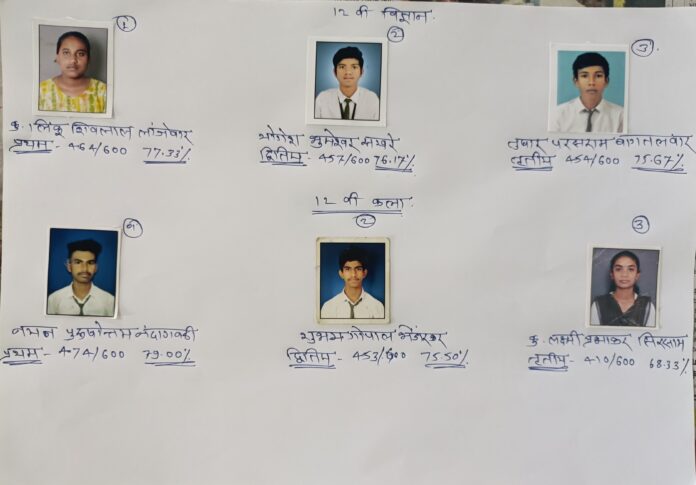 12 वी विज्ञान.
①
②
③
कु. लिंकू शिवलाल लांजेवार
प्रथम - 464/600 77.33%
योगेश सुमेश्वर मेश्रे
द्वितिय - 457/600 76.17%
तुषार परसराम बागतलवार
तृतीय - 454/600 75.67%
12 वी कला.
②
③
नमन पुरुषोत्तम नंदागवळी
प्रथम - 474/600 79.00%
शुभम गोपाल भेंडारकर
द्वितिय - 453/600 75.50%
कु. लक्ष्मी प्रभाकर सिरसाम
तृतीय - 410/600 68.33%